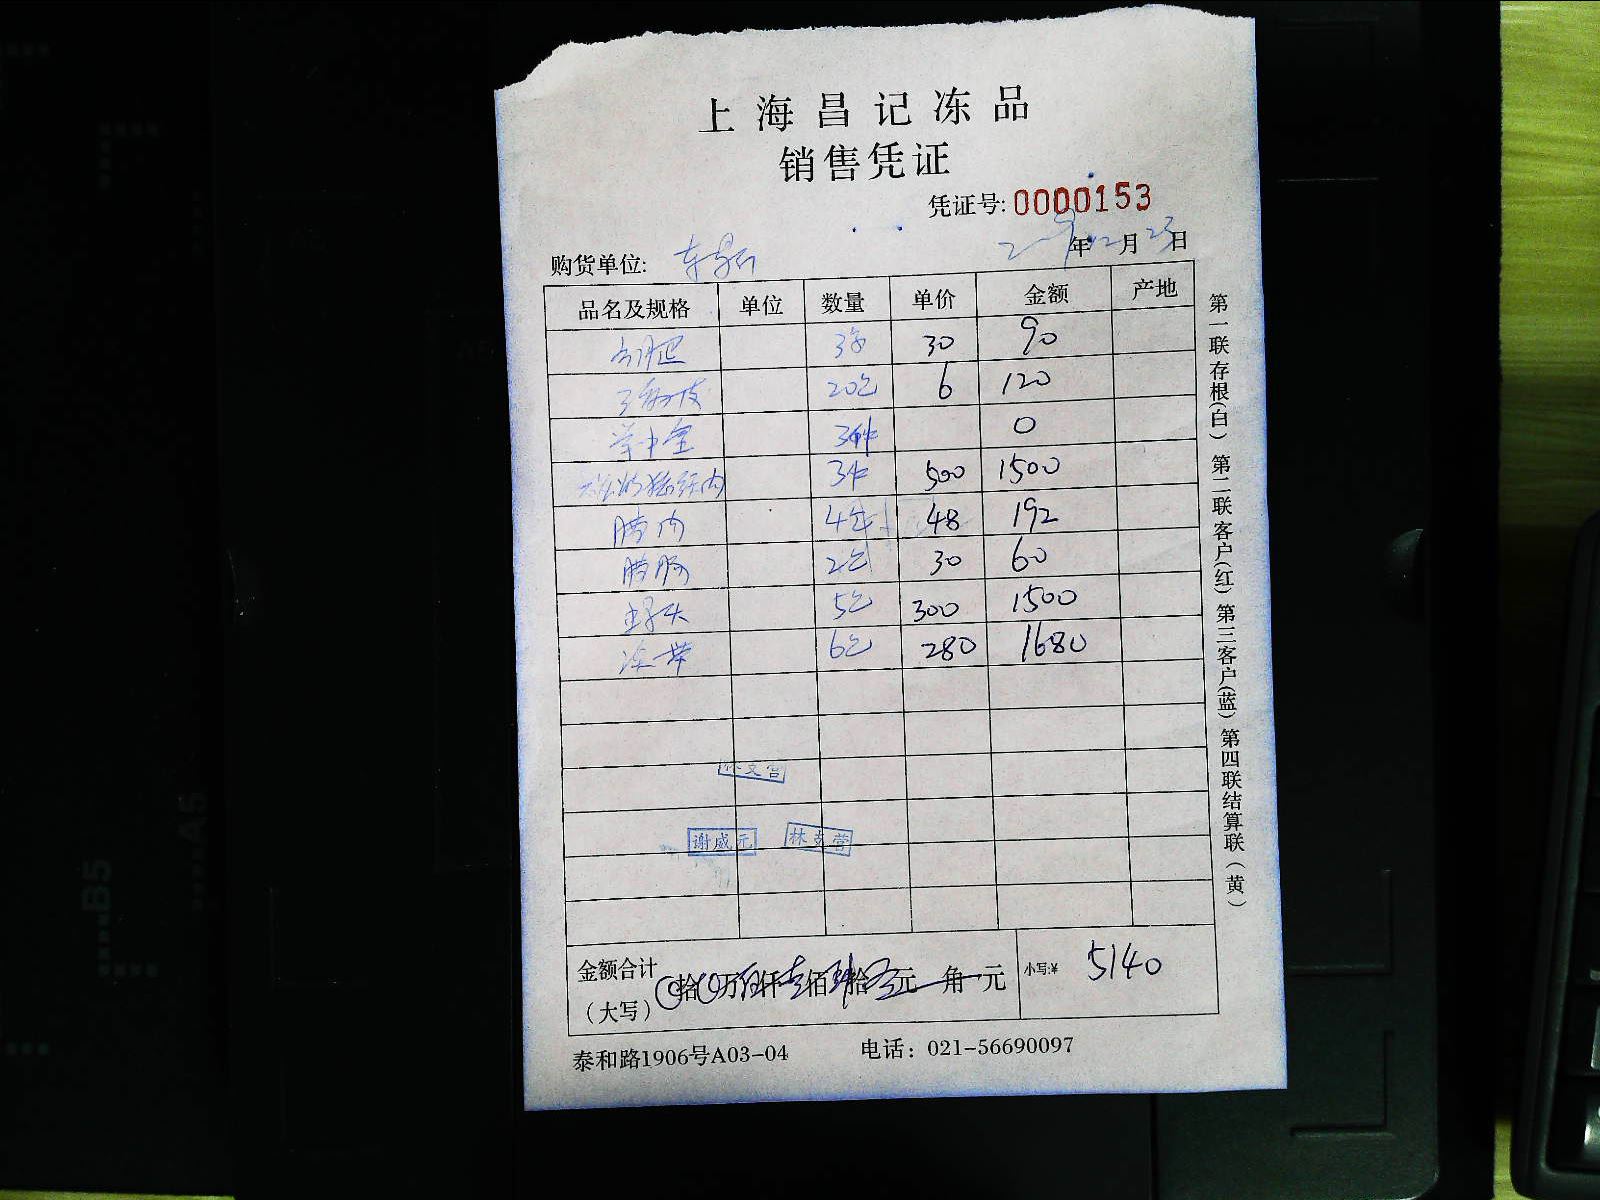 上海昌记冻品
销售凭证
凭证号: 0000153
购货单位: 年12月23日
品名及规格 单位 数量 单价 金额 产地
30 90
20包 6 120
3件 0
3件 500 1500
腊肉 4包 48 192
腊肠 2包 30 60
5包 300 1500
6包 280 1680
林支营
谢威元 林支营
金额合计 拾万伍仟壹佰肆拾零元 角 元 小写:¥ 5140
(大写)
泰和路1906号A03-04 电话: 021-56690097
第一联存根(白) 第二联客户(红) 第三客户(蓝) 第四联结算联(黄)
B5
A5